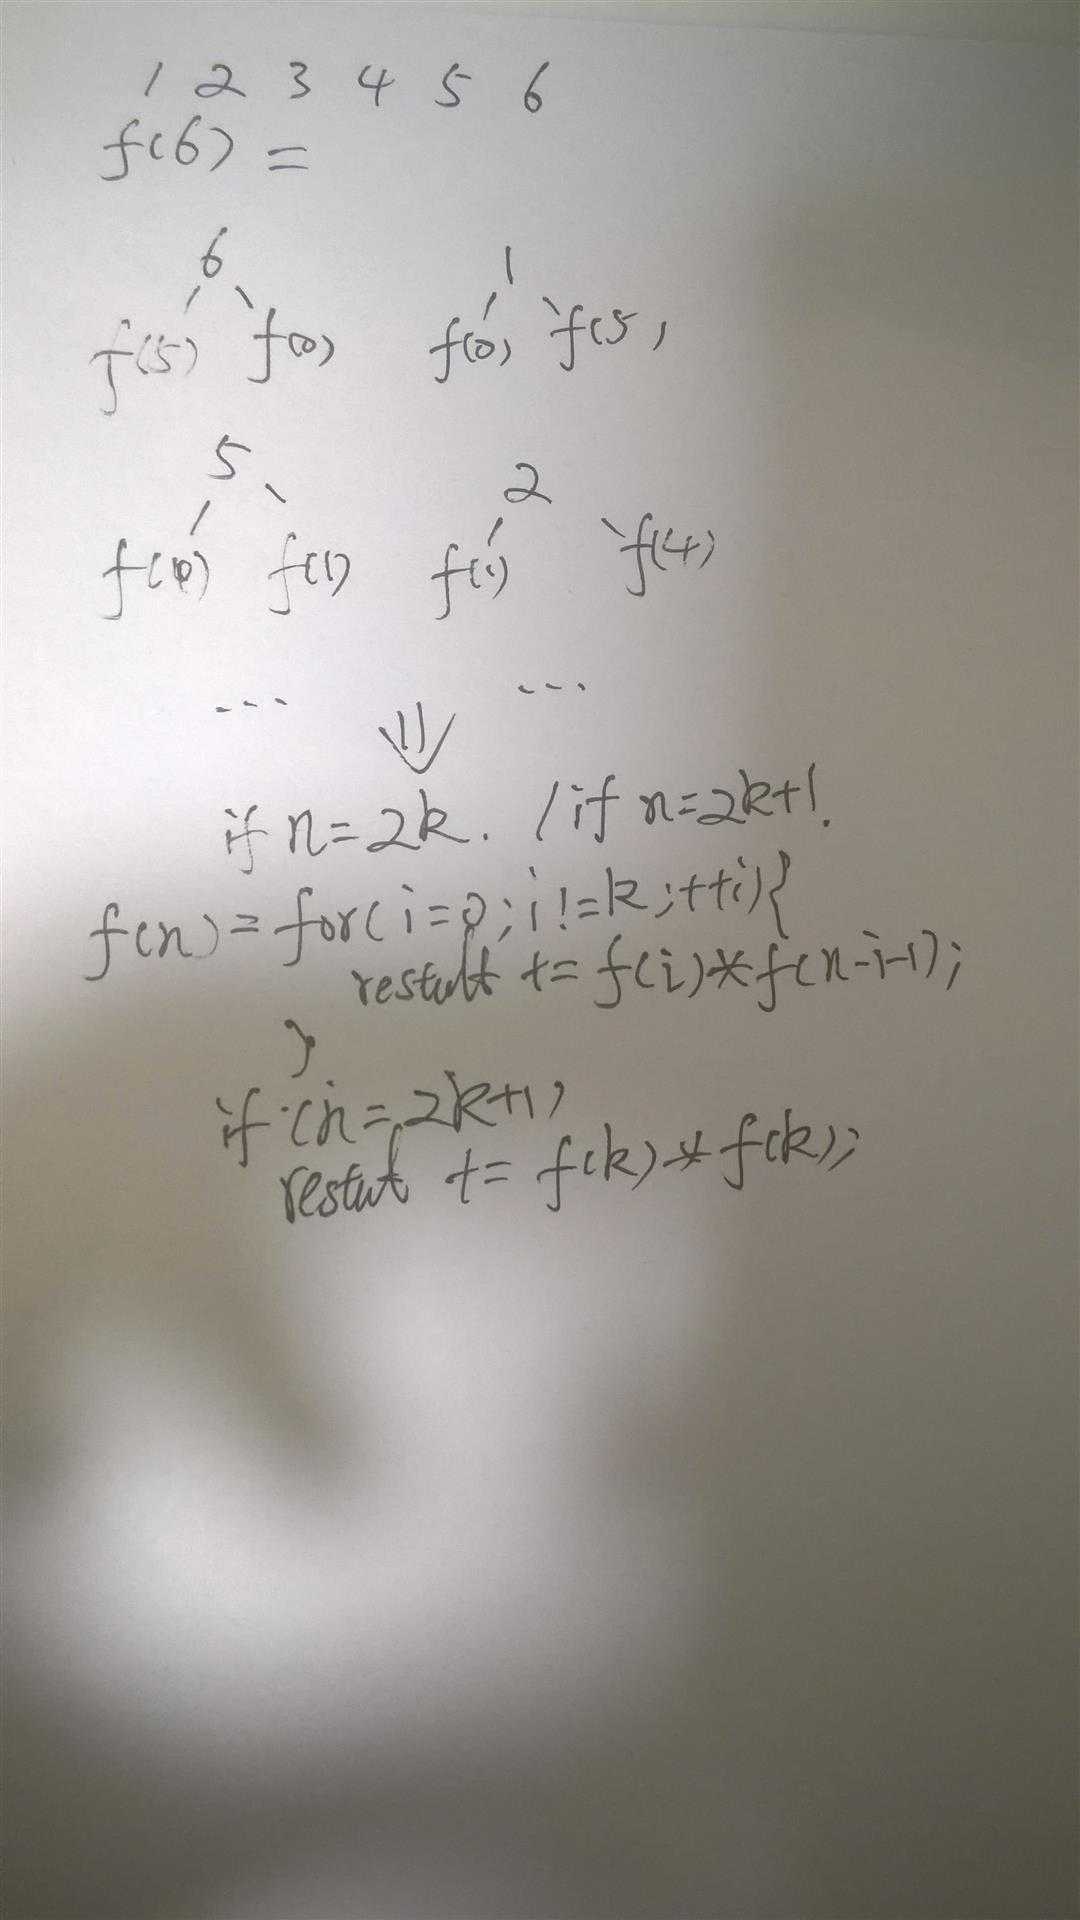 1 2 3 4 5 6
f(6) =
6 1
f(5) f(0) f(0) f(5)
5 2
f(4) f(1) f(1) f(4)
... ...
⇓
if n=2k. / if n=2k+1.
f(n) = for(i=0; i!=k; ++i){
restult += f(i)*f(n-i-1);
}
if (n=2k+1)
restut += f(k)*f(k);